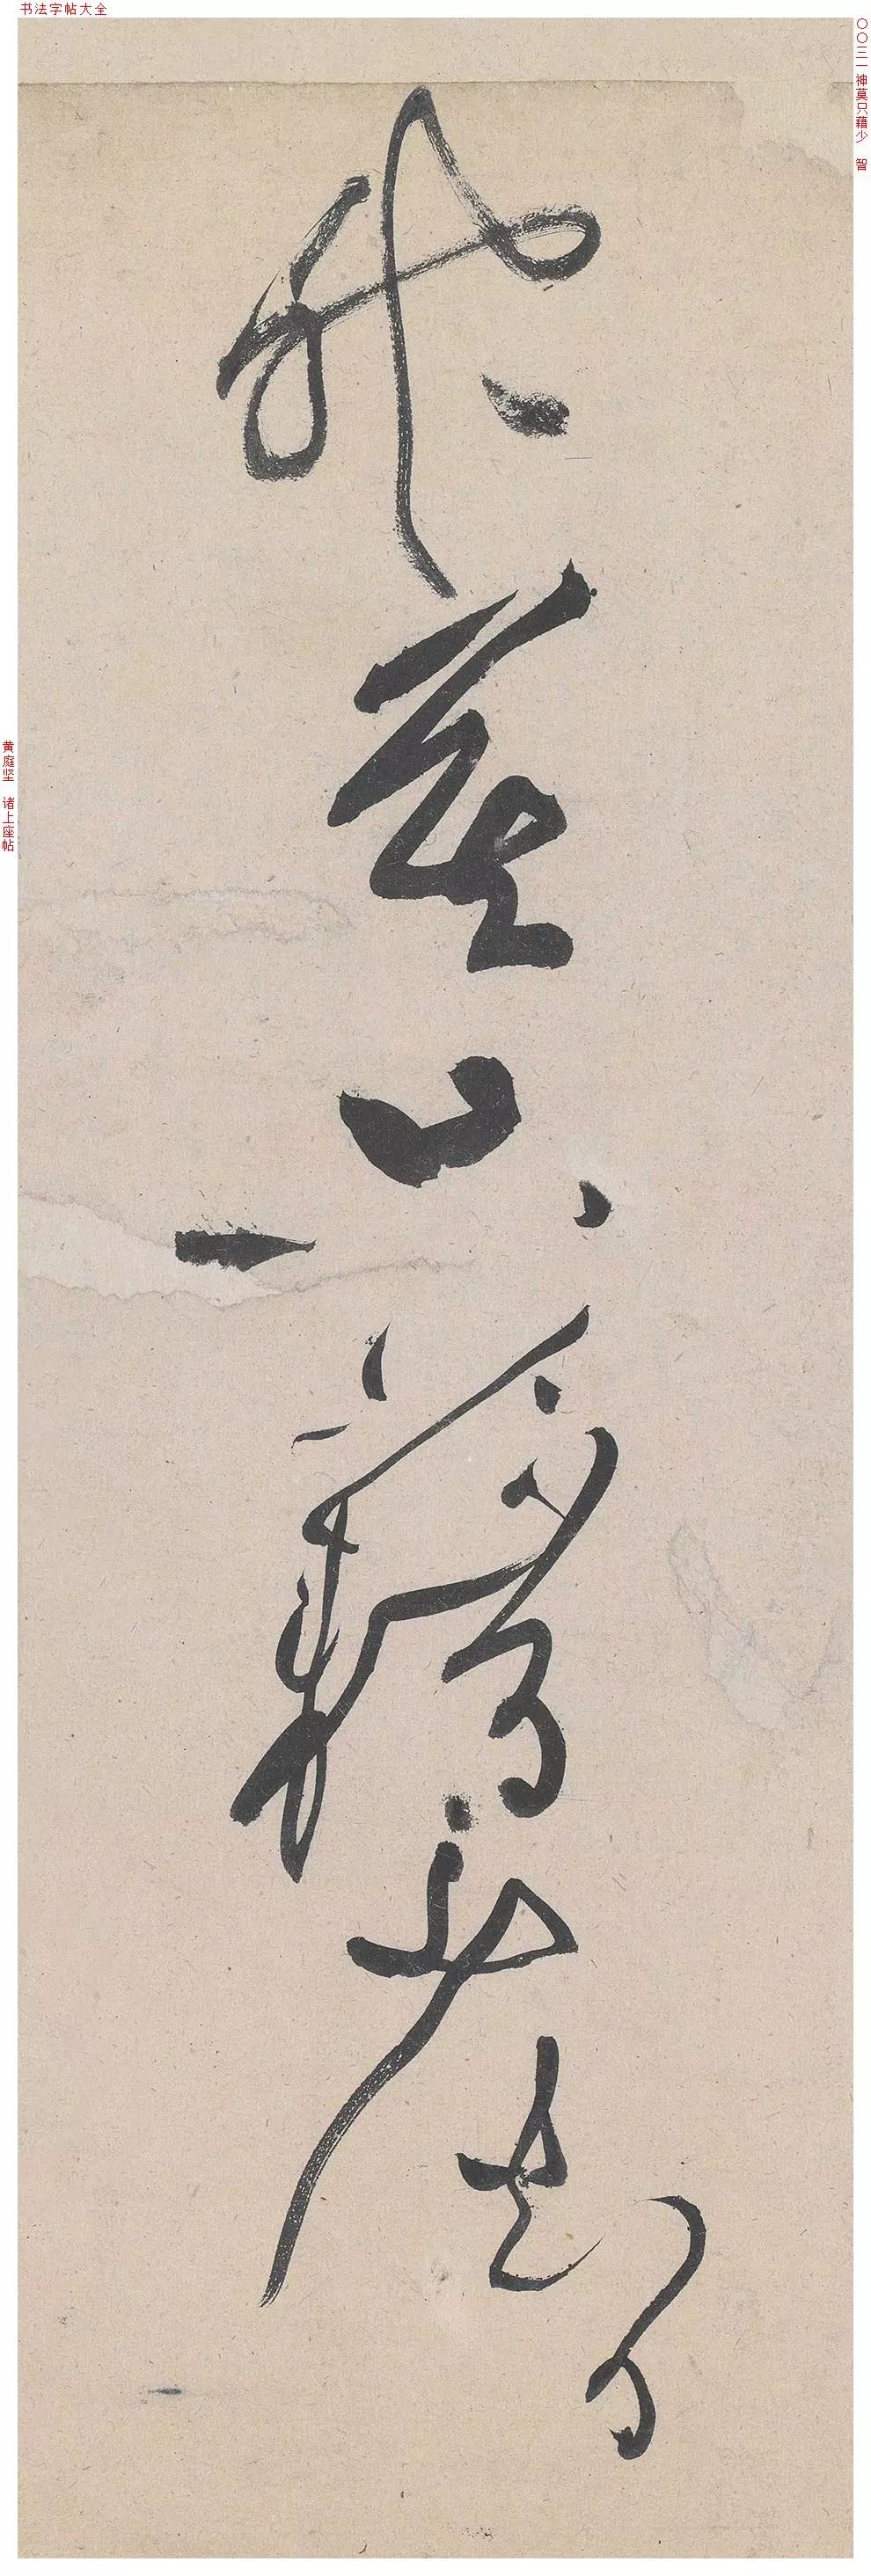 书法字帖大全
〇〇三一 神莫只藉少 智
神莫只藉少智
黄庭坚 诸上座帖